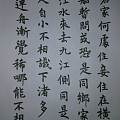 君家何處住妾住在橫
暫借問或恐是同鄉家
江水來去九江側同是
人自小不相識下渚多
連舟漸覺稀哪能不相